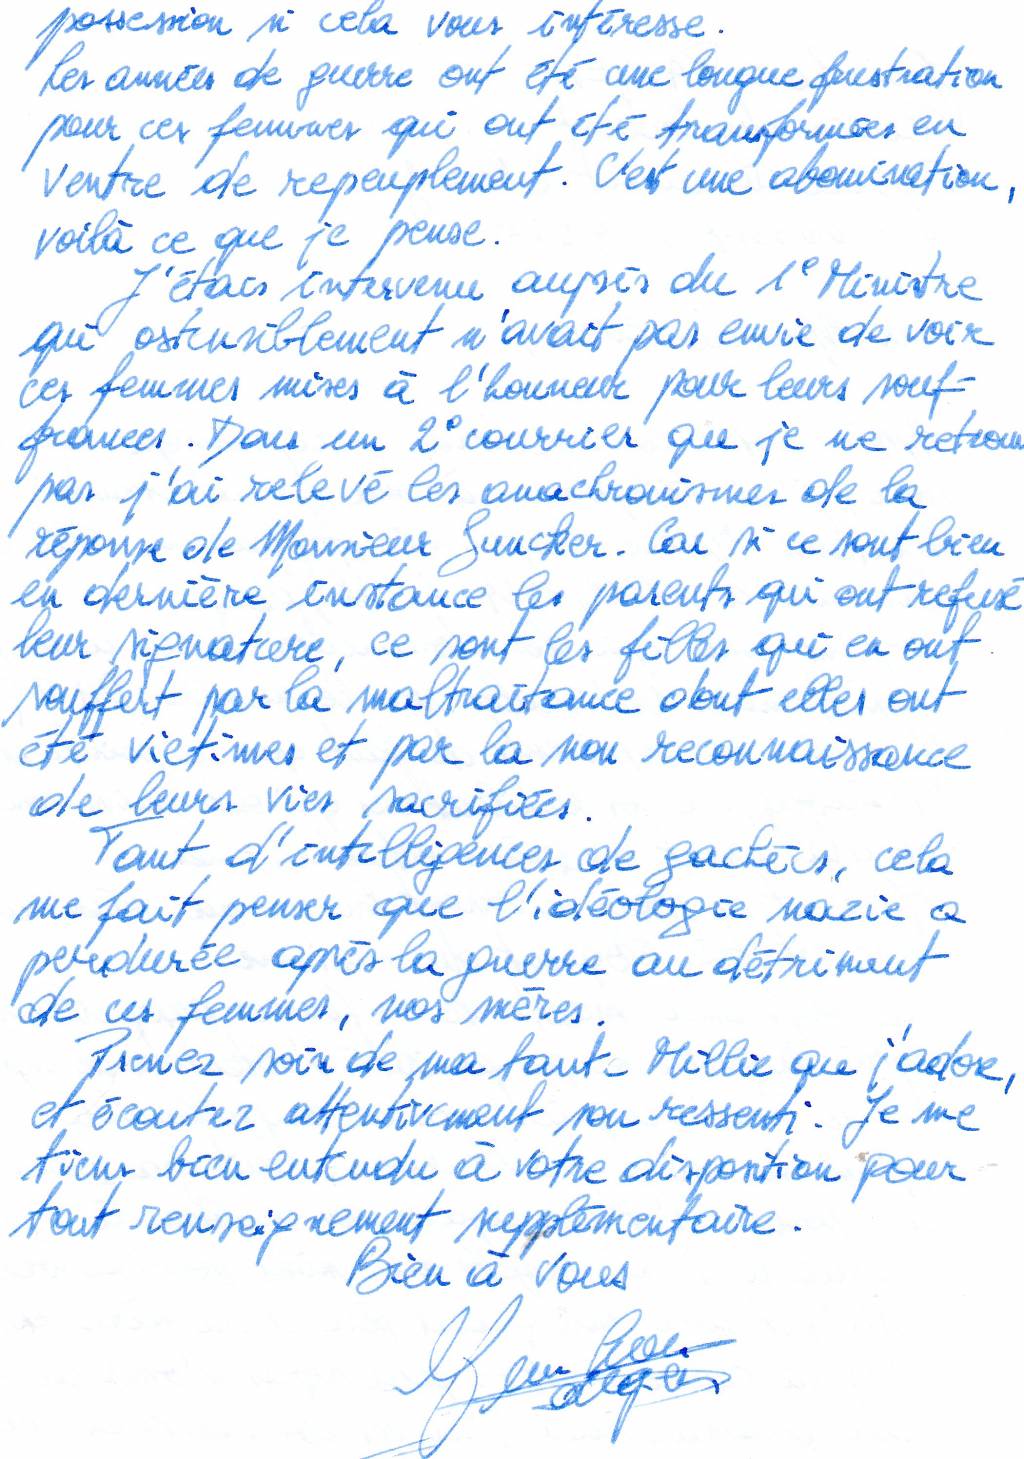 possession si cela vous intéresse.
Les années de guerre ont été une longue frustration
pour ces femmes qui ont été transformées en
ventre de repeuplement. C'est une abomination,
voilà ce que je pense.
J'étais intervenu auprès du 1e Ministre
qui ostensiblement n'avait pas envie de voir
ces femmes mises à l'honneur pour leurs souf-
frances. Dans un 2e courrier que je ne retrouve
pas j'ai relevé les anachronismes de la
réponse de Monsieur Juncker. Car si ce sont bien
en dernière instance les parents qui ont refusé
leur signature, ce sont les filles qui en ont
souffert par la maltraitance dont elles ont
été victimes et par la non reconnaissance
de leurs vies sacrifiées.
Tant d'intelligences de gachées, cela
me fait penser que l'idéologie nazie a
perdurée après la guerre au détriment
de ces femmes, nos mères.
Prenez soin de ma tante Millie que j'adore,
et écoutez attentivement son ressenti. Je me
tiens bien entendu à votre disposition pour
tout renseignement supplémentaire.
Bien à vous